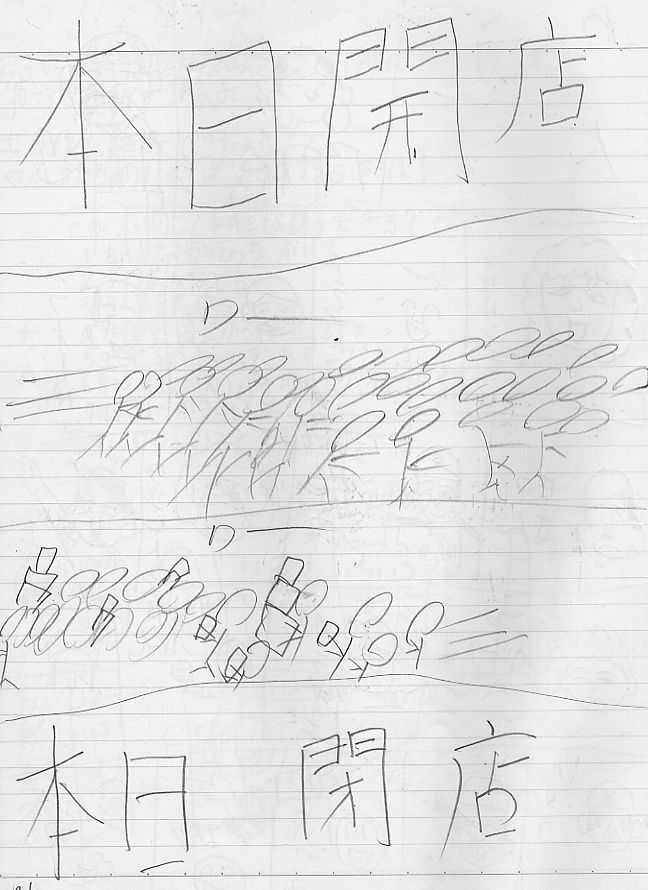 本日開店
ワー
ワー
本日閉店